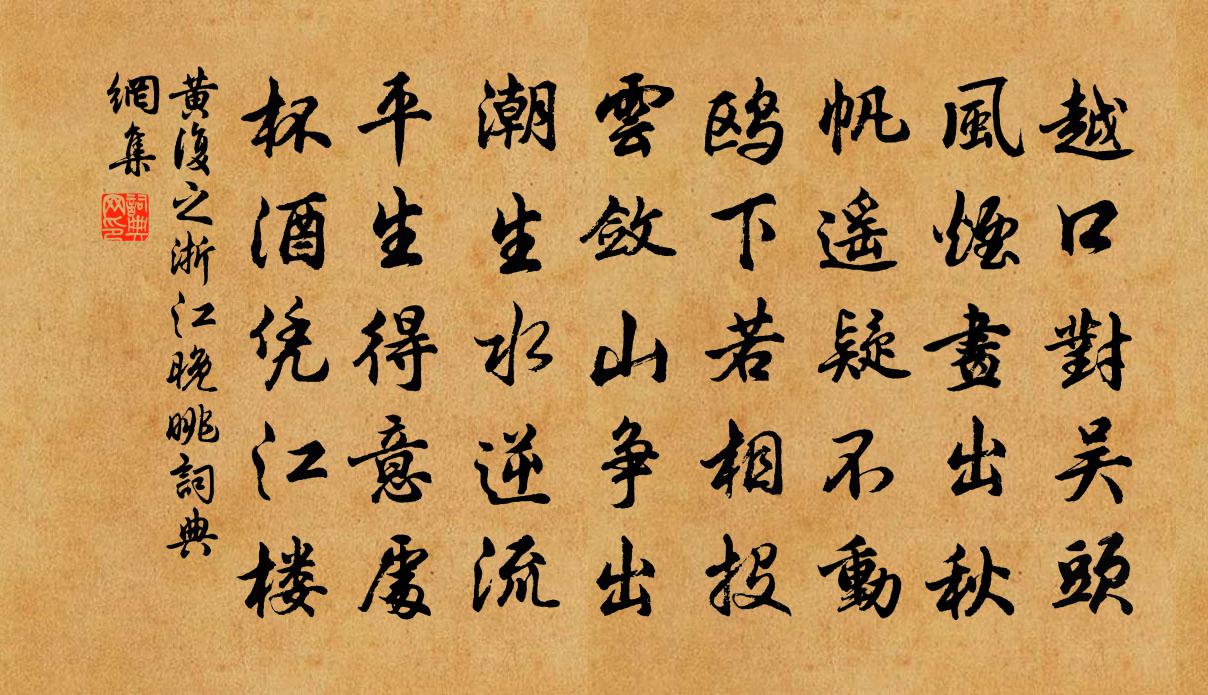 越口對吴頭
風煙畫出秋
帆遥疑不動
鸥下若相投
雲斂山争出
潮生水逆流
平生得意處
杯酒凭江楼
黄復之浙江晚眺詞典
網集
詞典網印